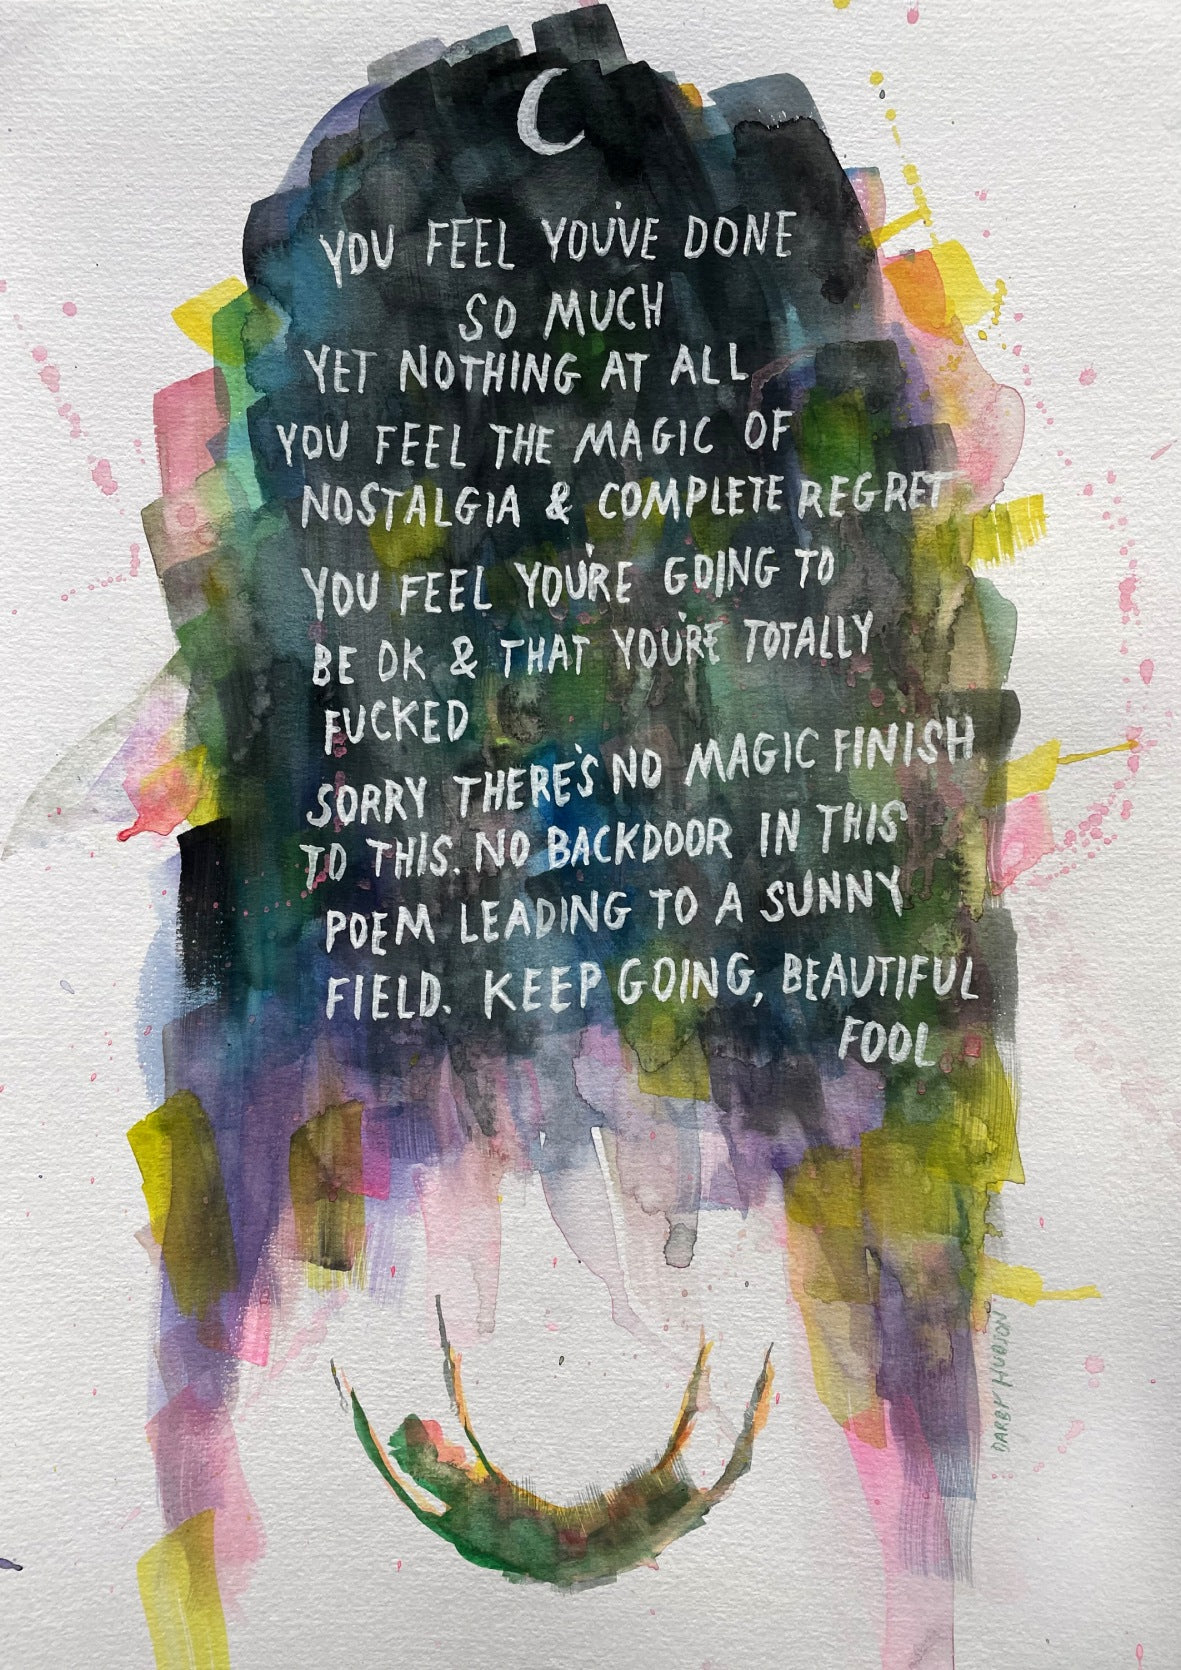 YOU FEEL YOU'VE DONE
SO MUCH
YET NOTHING AT ALL
YOU FEEL THE MAGIC OF
NOSTALGIA & COMPLETE REGRET
YOU FEEL YOU'RE GOING TO
BE OK & THAT YOU'RE TOTALLY
FUCKED
SORRY THERE'S NO MAGIC FINISH
TO THIS. NO BACKDOOR IN THIS
POEM LEADING TO A SUNNY
FIELD. KEEP GOING, BEAUTIFUL
FOOL
DARBY HUDSON